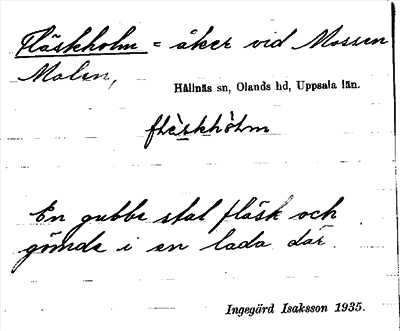 Fläskholm = åker vid Mossen
Malen,
Hållnäs sn, Olands hd, Uppsala län.
flɛ̀skhòlm
En gubbe stal fläsk och
gömde i en lada där.
Ingegärd Isaksson 1935.